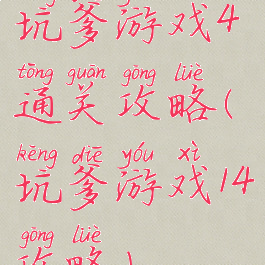 坑爹游戏4
tōng guān gōng lüè
通关攻略(
kēng diē yóu xì
坑爹游戏14
gōng lüè
攻略)